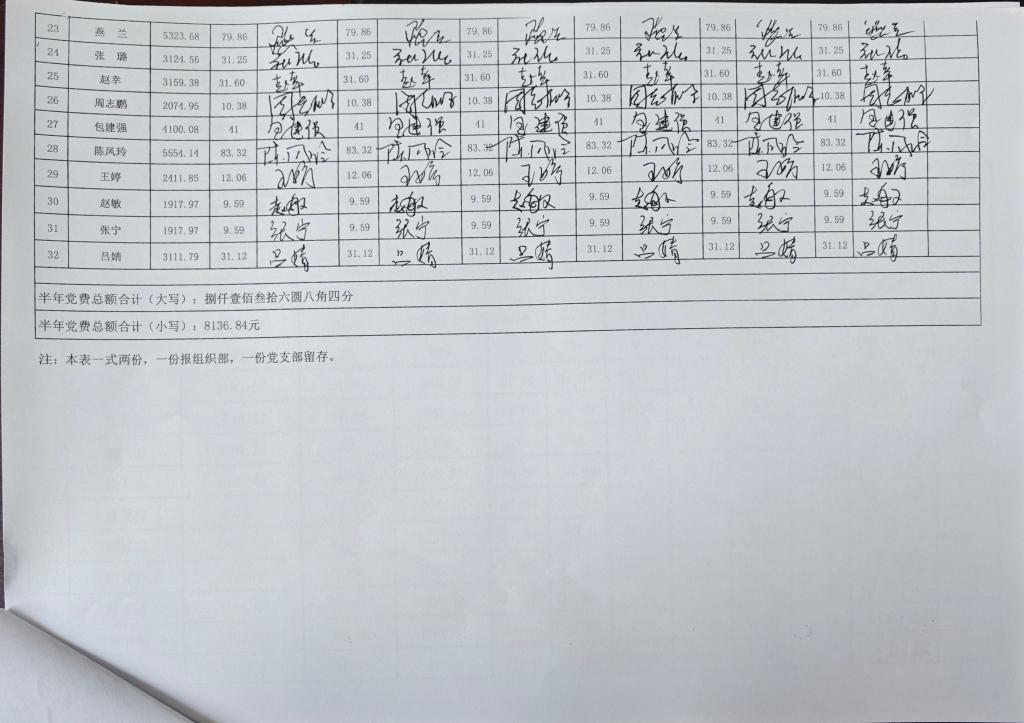 23 燕 兰 5323.68 79.86 燕兰 79.86 燕兰 79.86 燕兰 79.86 燕兰 79.86 燕兰 79.86 燕兰
24 张 璐 3124.56 31.25 张璐 31.25 张璐 31.25 张璐 31.25 张璐 31.25 张璐 31.25 张璐
25 赵幸 3159.38 31.60 赵幸 31.60 赵幸 31.60 赵幸 31.60 赵幸 31.60 赵幸 31.60 赵幸
26 周志鹏 2074.95 10.38 周志鹏 10.38 周志鹏 10.38 周志鹏 10.38 周志鹏 10.38 周志鹏 10.38 周志鹏
27 包建强 4100.08 41 包建强 41 包建强 41 包建强 41 包建强 41 包建强 41 包建强
28 陈凤玲 5554.14 83.32 陈凤玲 83.32 陈凤玲 83.32 陈凤玲 83.32 陈凤玲 83.32 陈凤玲 83.32 陈凤玲
29 王婷 2411.85 12.06 王婷 12.06 王婷 12.06 王婷 12.06 王婷 12.06 王婷 12.06 王婷
30 赵敏 1917.97 9.59 赵敏 9.59 赵敏 9.59 赵敏 9.59 赵敏 9.59 赵敏 9.59 赵敏
31 张宁 1917.97 9.59 张宁 9.59 张宁 9.59 张宁 9.59 张宁 9.59 张宁 9.59 张宁
32 吕婧 3111.79 31.12 吕婧 31.12 吕婧 31.12 吕婧 31.12 吕婧 31.12 吕婧 31.12 吕婧
半年党费总额合计（大写）：捌仟壹佰叁拾六圆八角四分
半年党费总额合计（小写）：8136.84元
注：本表一式两份，一份报组织部，一份党支部留存。